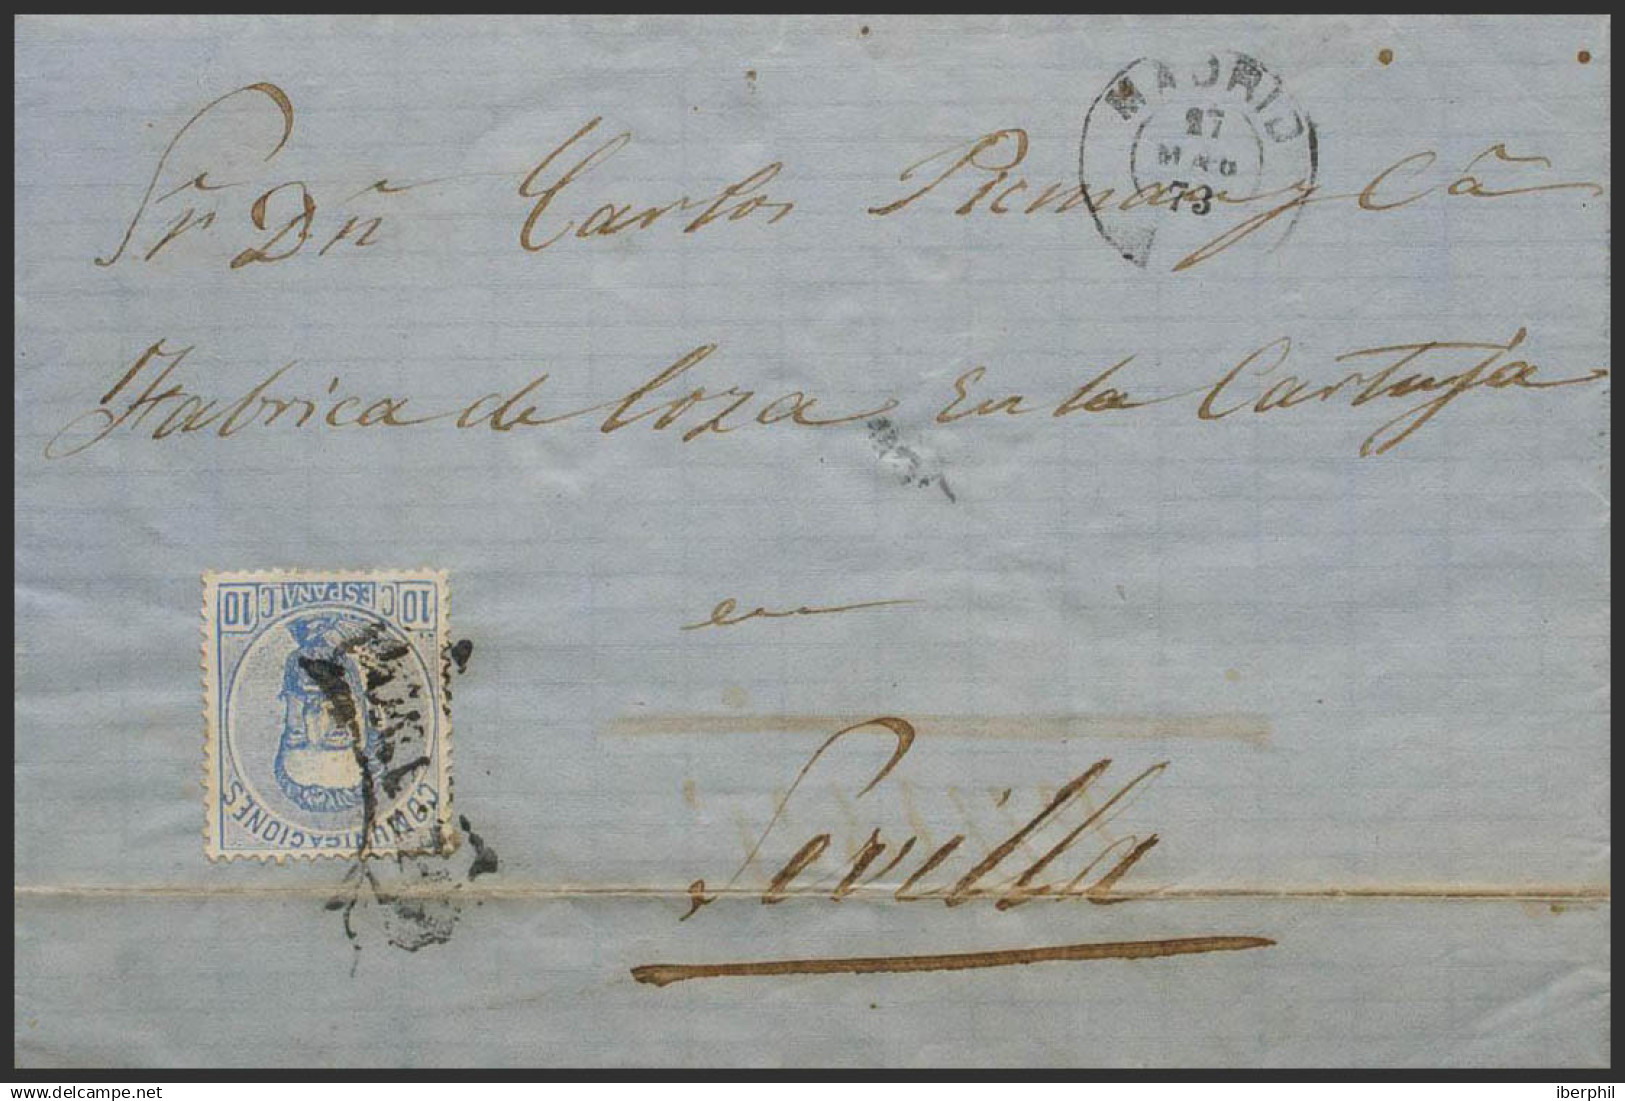 MADRID
27
MAR
73
Sr Dn Carlos Picman y Ca
Fabrica de loza en la Cartuja
en
Sevilla
10 C ESPAÑA C 10
COMUNICACIONES
iberphil